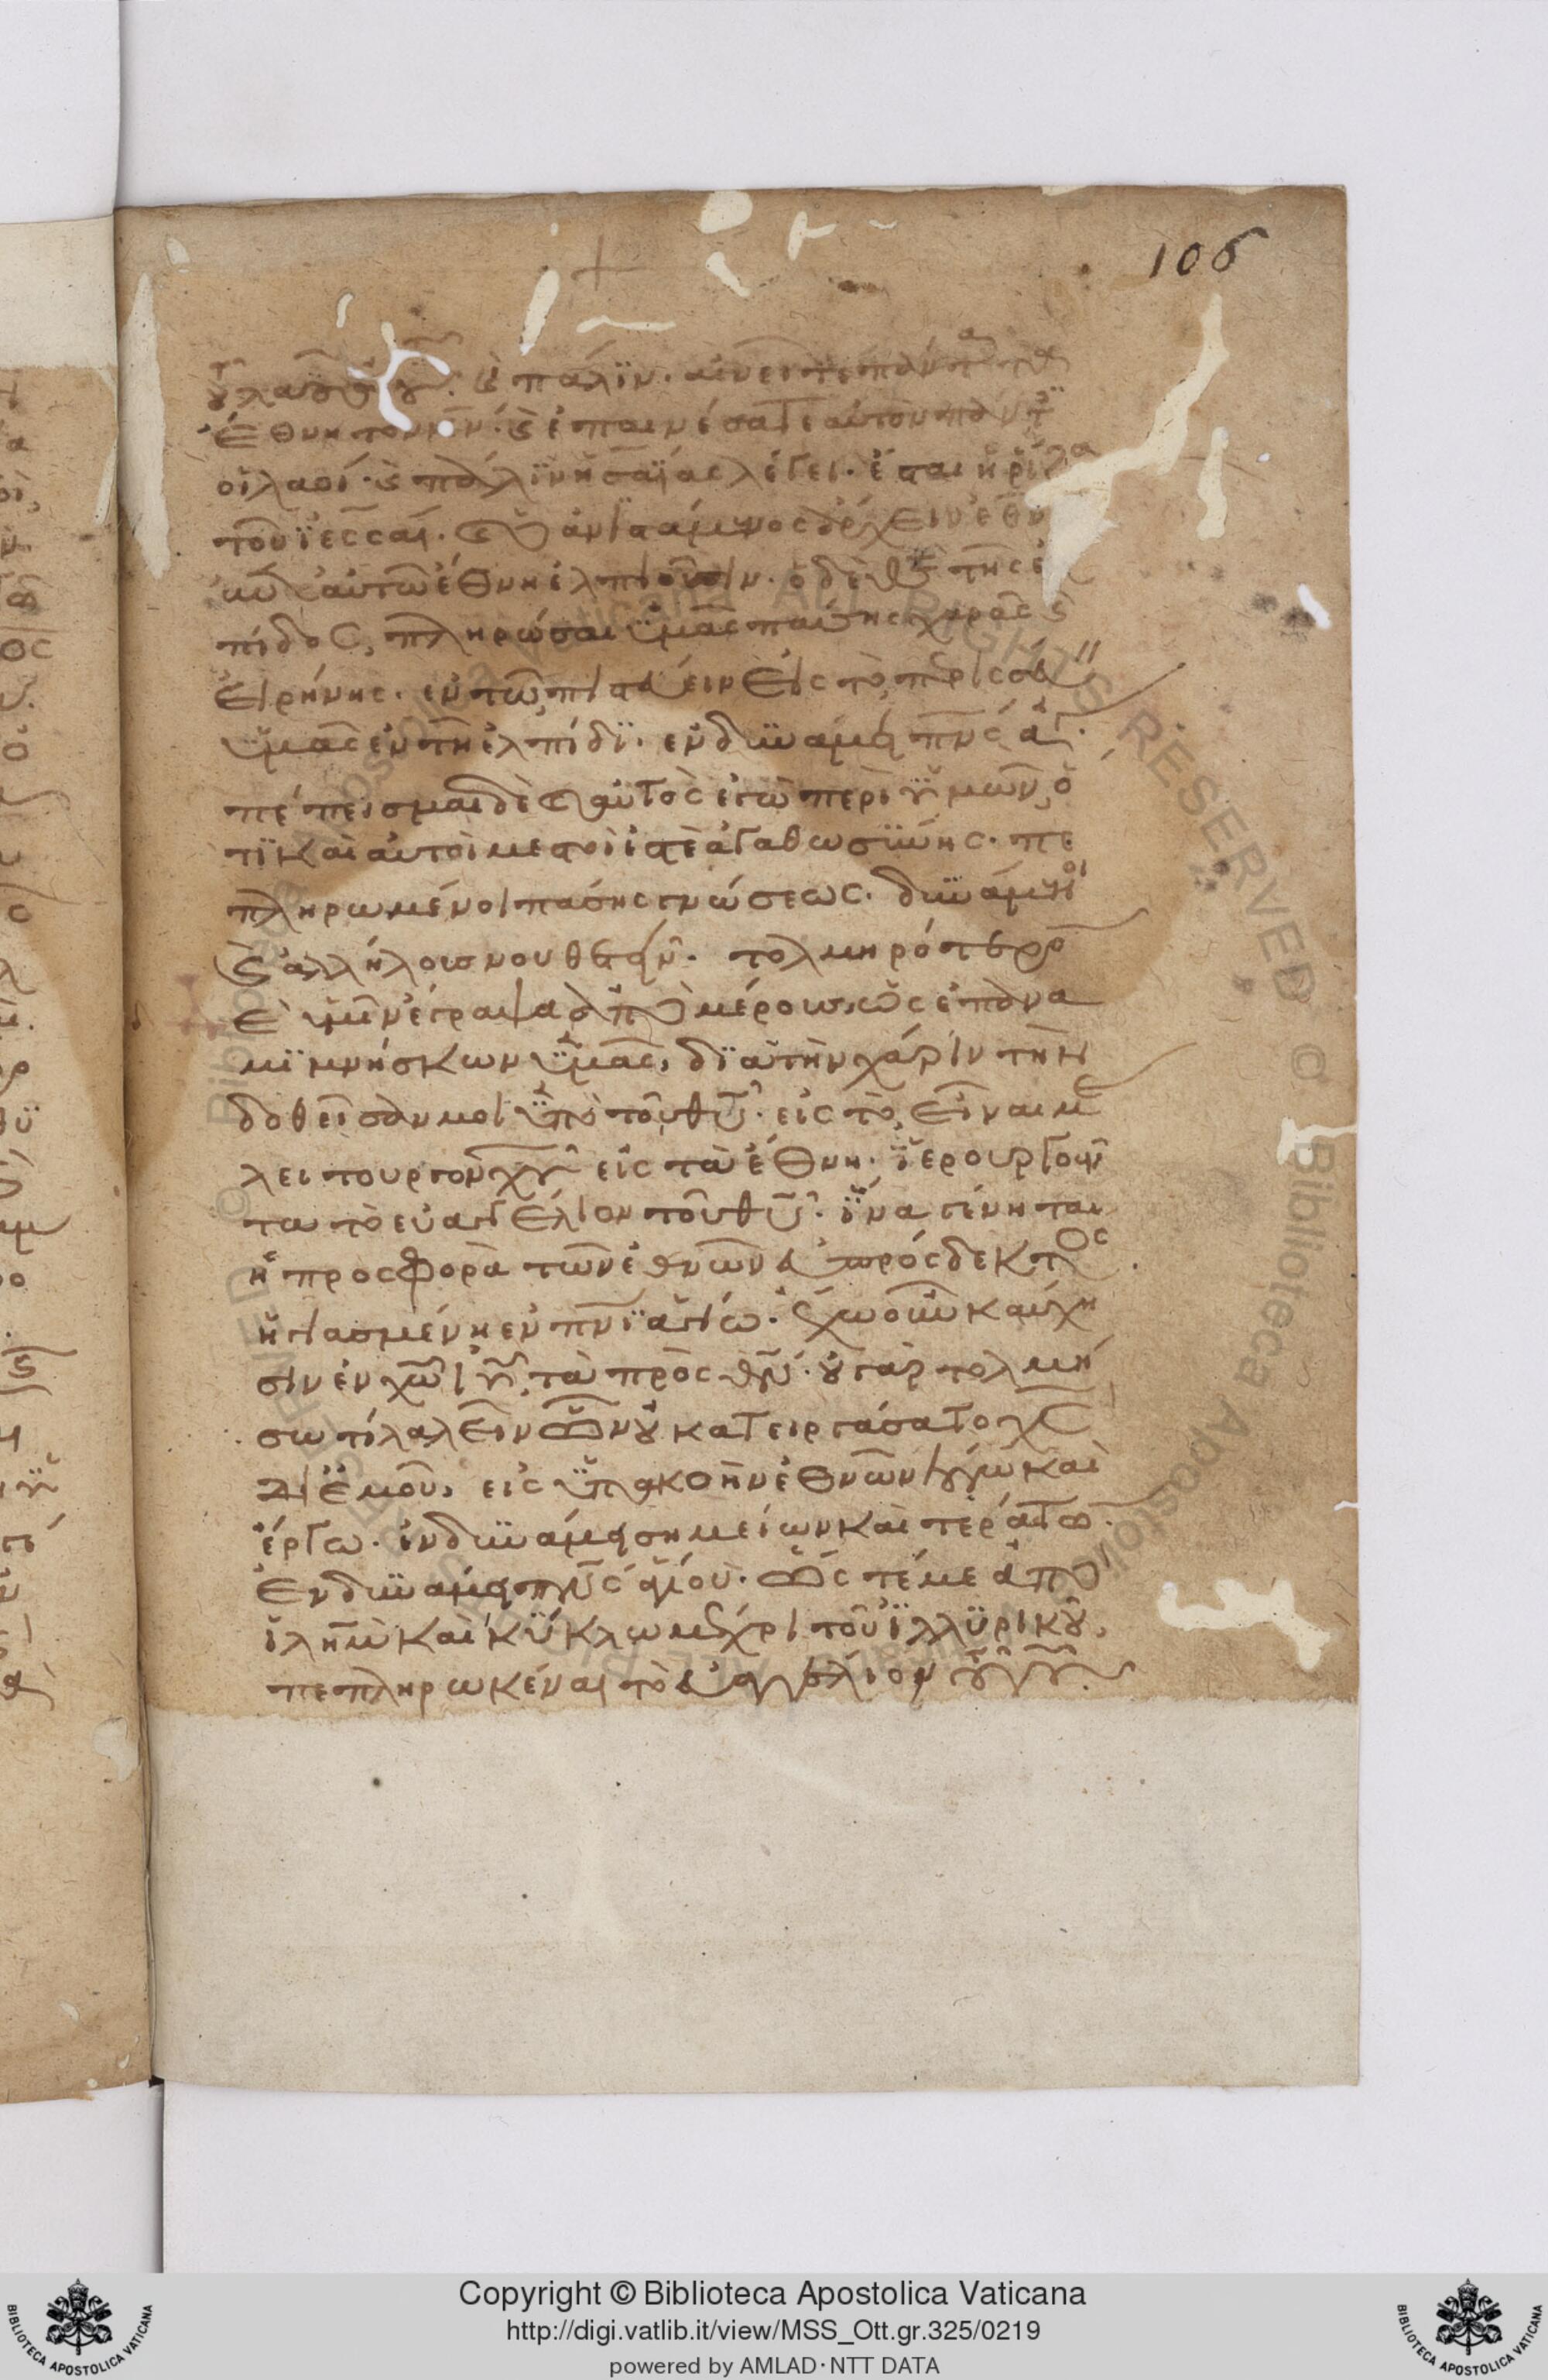 106
τοῦ λαοῦ αὐτοῦ. καὶ πάλϊν. αἰνεῖτε πάντα τὰ
ἔθνη τὸν κν̄. καὶ ἐπαινέσατε αὐτὸν πάντες
οἱ λαοί. καὶ πάλϊν ἡσαΐας λέγει. ἔσται ἡ ῥίζα
τοῦ ϊεσσαί. καὶ ὁ ἀνϊστάμενος ἄρχειν ἐθνῶν
ἐπ' αὐτῶ ἔθνη ἐλπιοῦσιν. ὁ δὲ θς̄ τῆς ἐλ
πίδος, πληρώσαι ὑμᾶς πάσης χαρᾶς καὶ
εἰρήνης. ἐν τῶ πιστεύειν εἰς τὸ περισσεύειν
ὑμᾶς ἐν τῆ ἐλπίδϊ. ἐν δυνάμει πνς̄ ἁγίου.
πέπεισμαι δὲ καὶ αὐτὸς ἐγὼ περὶ ὑμῶν, ὅ
τϊ καὶ αὐτοὶ μεστοί ἐστε ἀγαθωσύνης. πε
πληρωμένοι πάσης γνώσεως. δυνάμενοι
καὶ ἀλλήλους νουθετεῖν. τολμηρότερον
δὲ ὑμῖν ἔγραψα ἀπὸ μέρους, ὡς ἐπανα
μϊμνήσκων ὑμᾶς, δϊὰ τὴν χάριν τὴν
δοθεῖσαν μοι ὑπὸ τοῦ θῡ. εἰς τὸ εἶναι με
λειτουργὸν χῡ εἰς τὰ ἔθνη. ἱερουργοῦν
τα τὸ εὐαγγέλιον τοῦ θῡ. ἵνα γένηται
ἡ προσφορὰ τῶν ἐθνῶν εὐπρόσδεκτος.
ἡγιασμένη ἐν πνϊ̄ ἁγίω. ἔχω οὖν καύχη
σιν ἐν χω̄ ιῡ, τὰ πρὸς θν̄. οὐ γὰρ τολμή
σω τί λαλεῖν ὧν οὐ κατειργάσατο χς̄
δι' ἐμοῦ, εἰς ὑπακοὴν ἐθνῶν λόγω καὶ
ἔργω. ἐν δυνάμει σημείων καὶ τεράτων.
ἐν δυνάμει πνς̄ ἁγίου. ὥστέ με ἀπὸ
ἱλη̄μ καὶ κύκλω μέχρι τοῦ ϊλλυρικοῦ,
πεπληρωκέναι τὸ εὐαγγέλιον τοῦ χῡ.
Copyright © Biblioteca Apostolica Vaticana
http://digi.vatlib.it/view/MSS_Ott.gr.325/0219
powered by AMLAD·NTT DATA